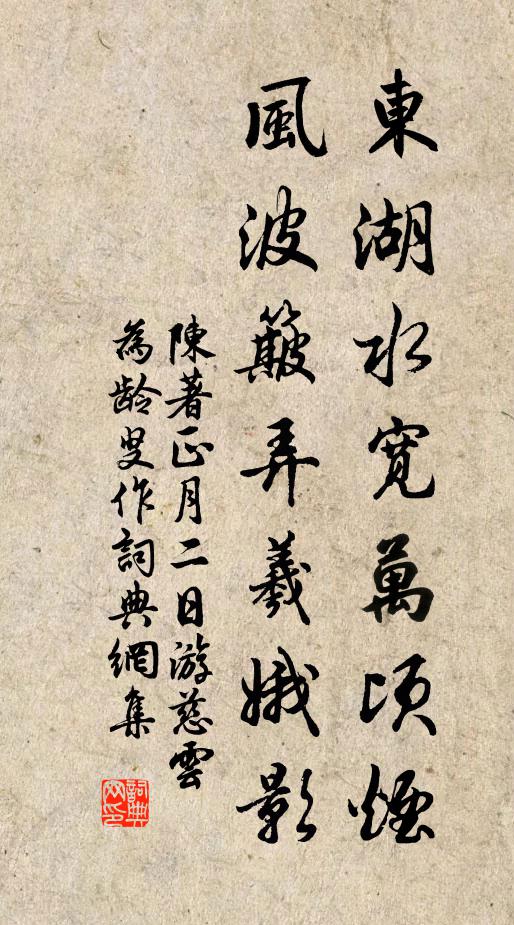 東湖水寬萬頃煙
風波簸弄羲娥影
陳著正月二日游慈雲
為齡叟作詞典網集
詞典网印